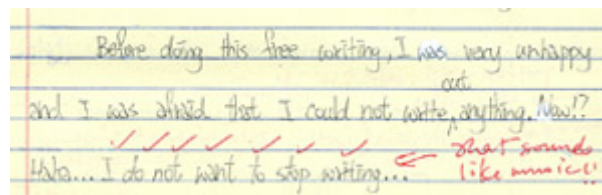 Before doing this free writing, I was very unhappy
out
and I was afraid that I could not write anything. Now!?
that sounds
Haha... I do not want to stop writing...
like music!!